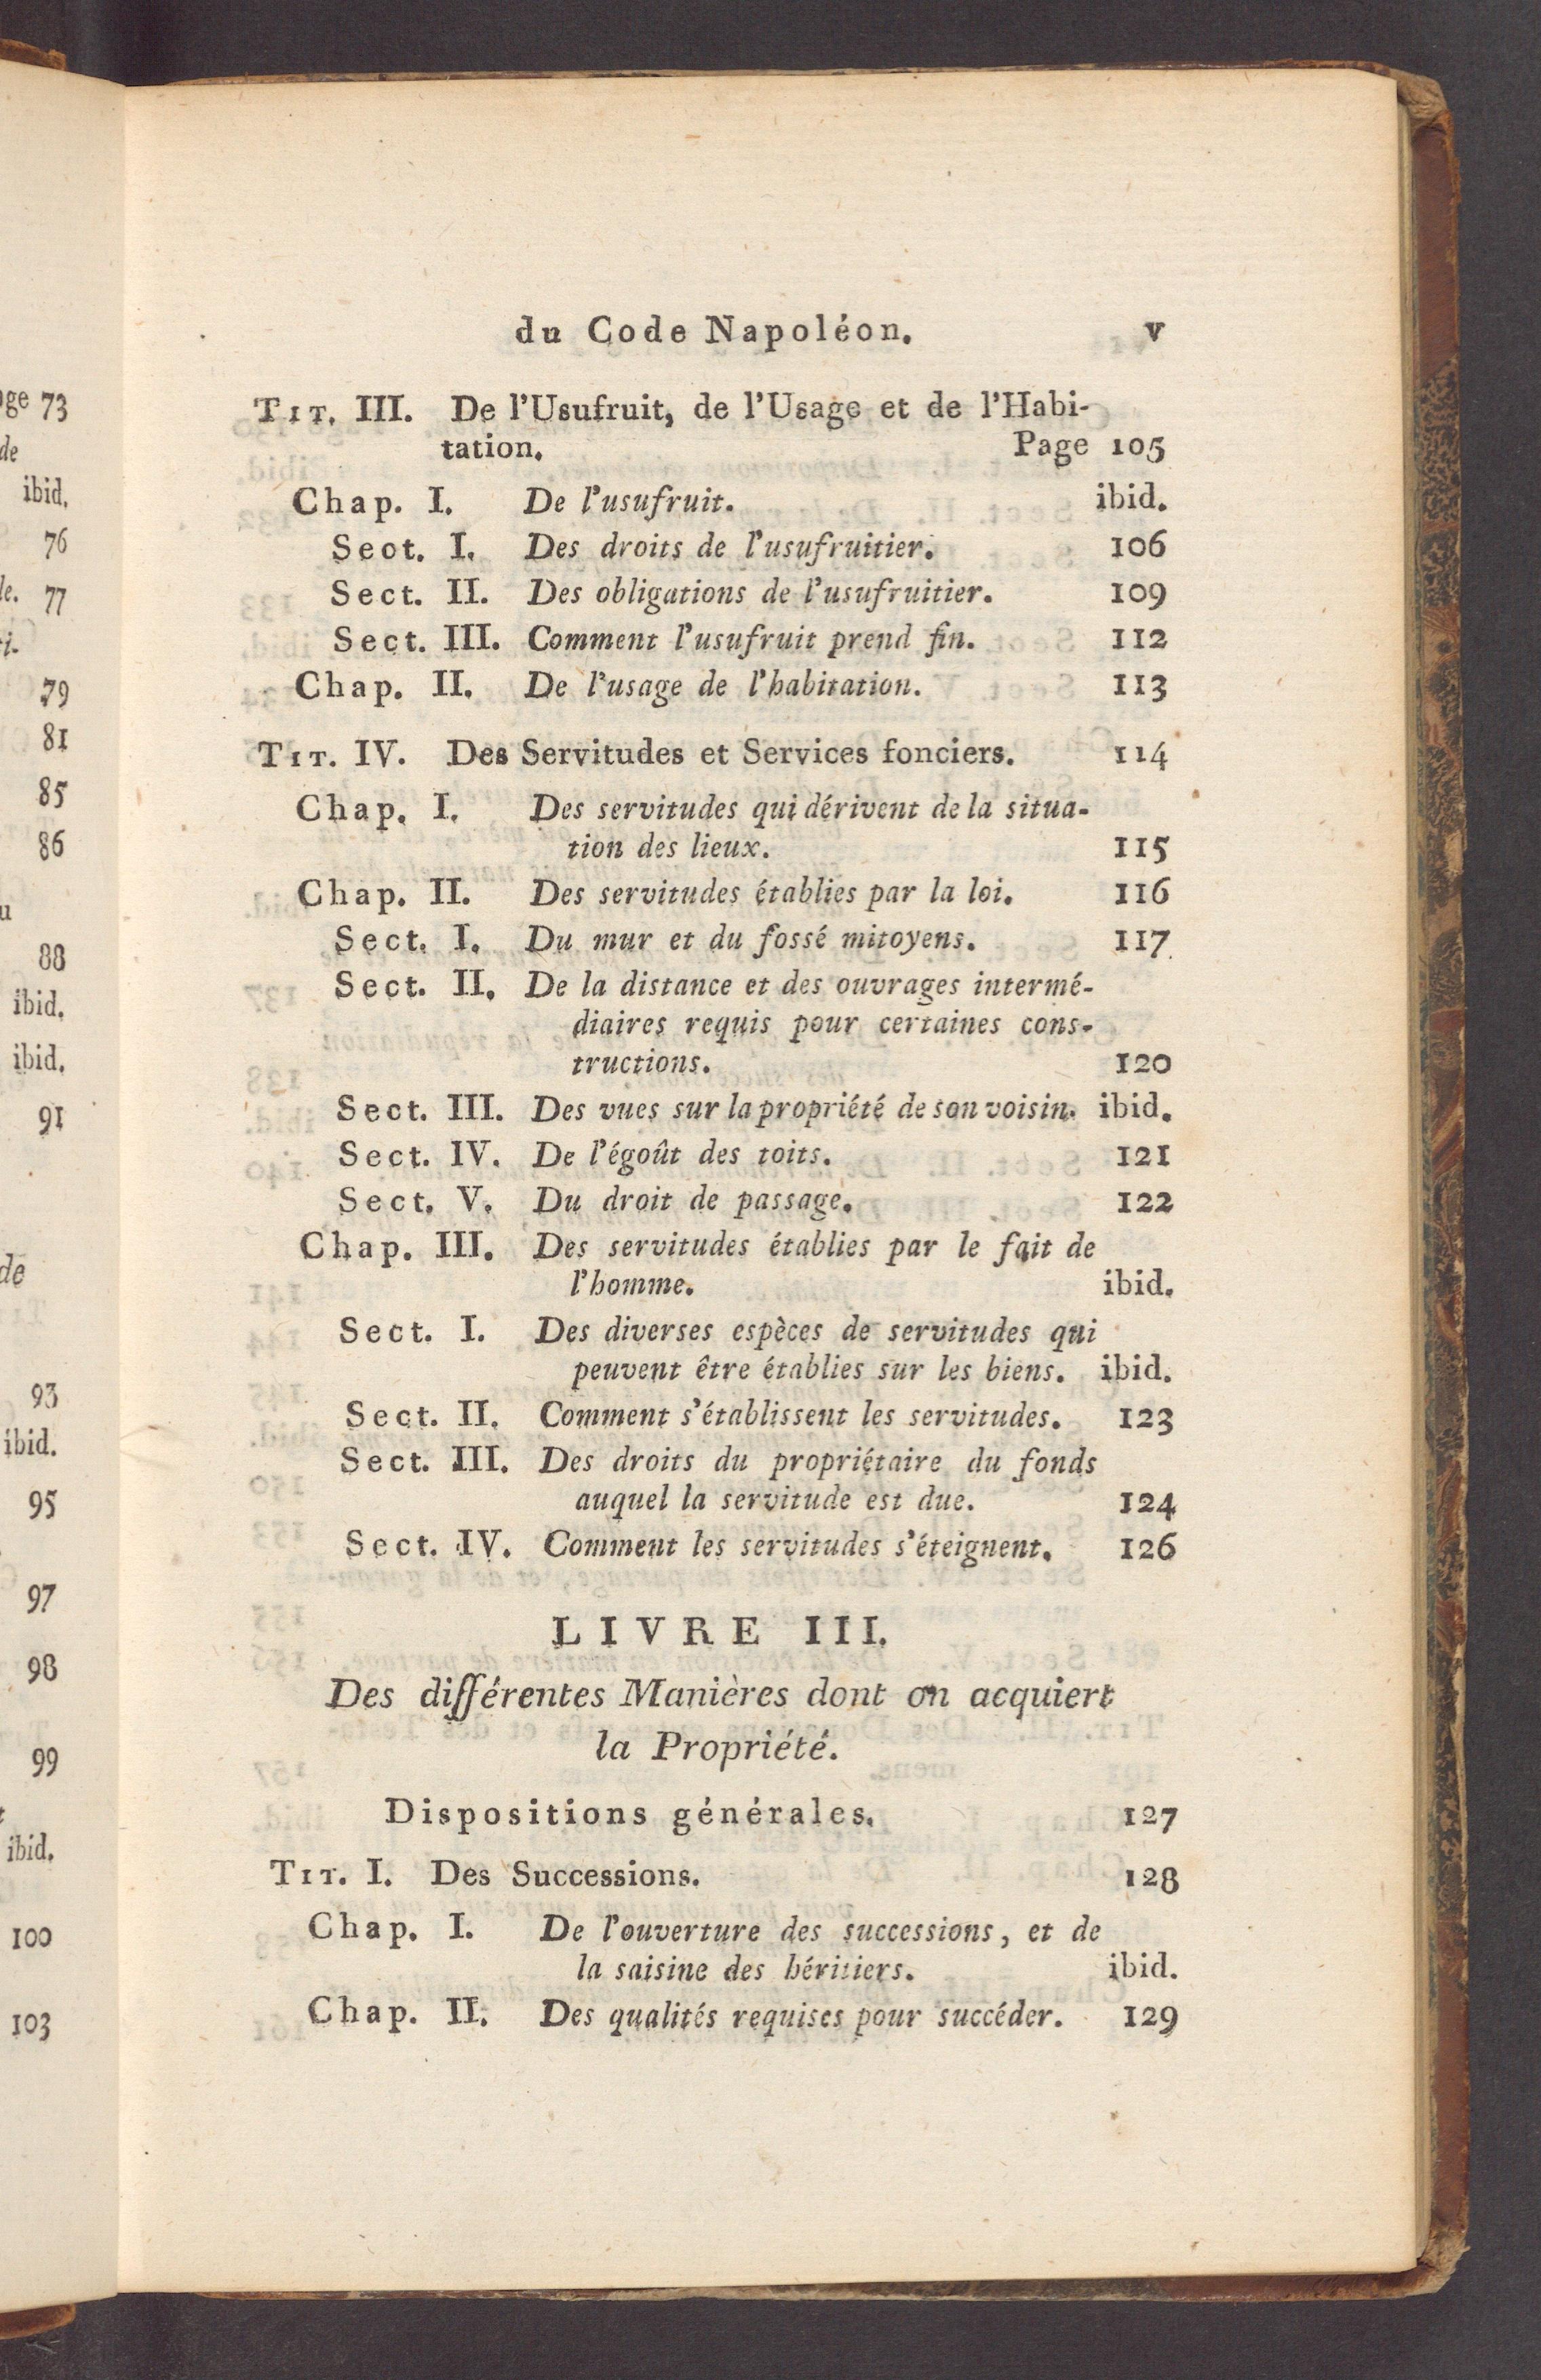 ge 73
de
ibid.
76
le. 77
i.
79
81
85
86
u
88
ibid.
ibid.
91
de
93
ibid.
95
97
98
99
ibid.
100
103
du Code Napoléon. v
TIT. III. De l'Usufruit, de l'Usage et de l'Habi-
tation. Page 105
Chap. I. De l'usufruit. ibid.
Sect. I. Des droits de l'usufruitier. 106
Sect. II. Des obligations de l'usufruitier. 109
Sect. III. Comment l'usufruit prend fin. 112
Chap. II. De l'usage de l'habitation. 113
TIT. IV. Des Servitudes et Services fonciers. 114
Chap. I. Des servitudes qui dérivent de la situa-
tion des lieux. 115
Chap. II. Des servitudes établies par la loi. 116
Sect. I. Du mur et du fossé mitoyens. 117
Sect. II. De la distance et des ouvrages intermé-
diaires requis pour certaines cons-
tructions. 120
Sect. III. Des vues sur la propriété de son voisin. ibid.
Sect. IV. De l'égoût des toits. 121
Sect. V. Du droit de passage. 122
Chap. III. Des servitudes établies par le fait de
l'homme. ibid.
Sect. I. Des diverses espèces de servitudes qui
peuvent être établies sur les biens. ibid.
Sect. II. Comment s'établissent les servitudes. 123
Sect. III. Des droits du propriétaire du fonds
auquel la servitude est due. 124
Sect. IV. Comment les servitudes s'éteignent. 126
LIVRE III.
Des différentes Manières dont on acquiert
la Propriété.
Dispositions générales. 127
TIT. I. Des Successions. 128
Chap. I. De l'ouverture des successions, et de
la saisine des héritiers. ibid.
Chap. II. Des qualités requises pour succéder. 129